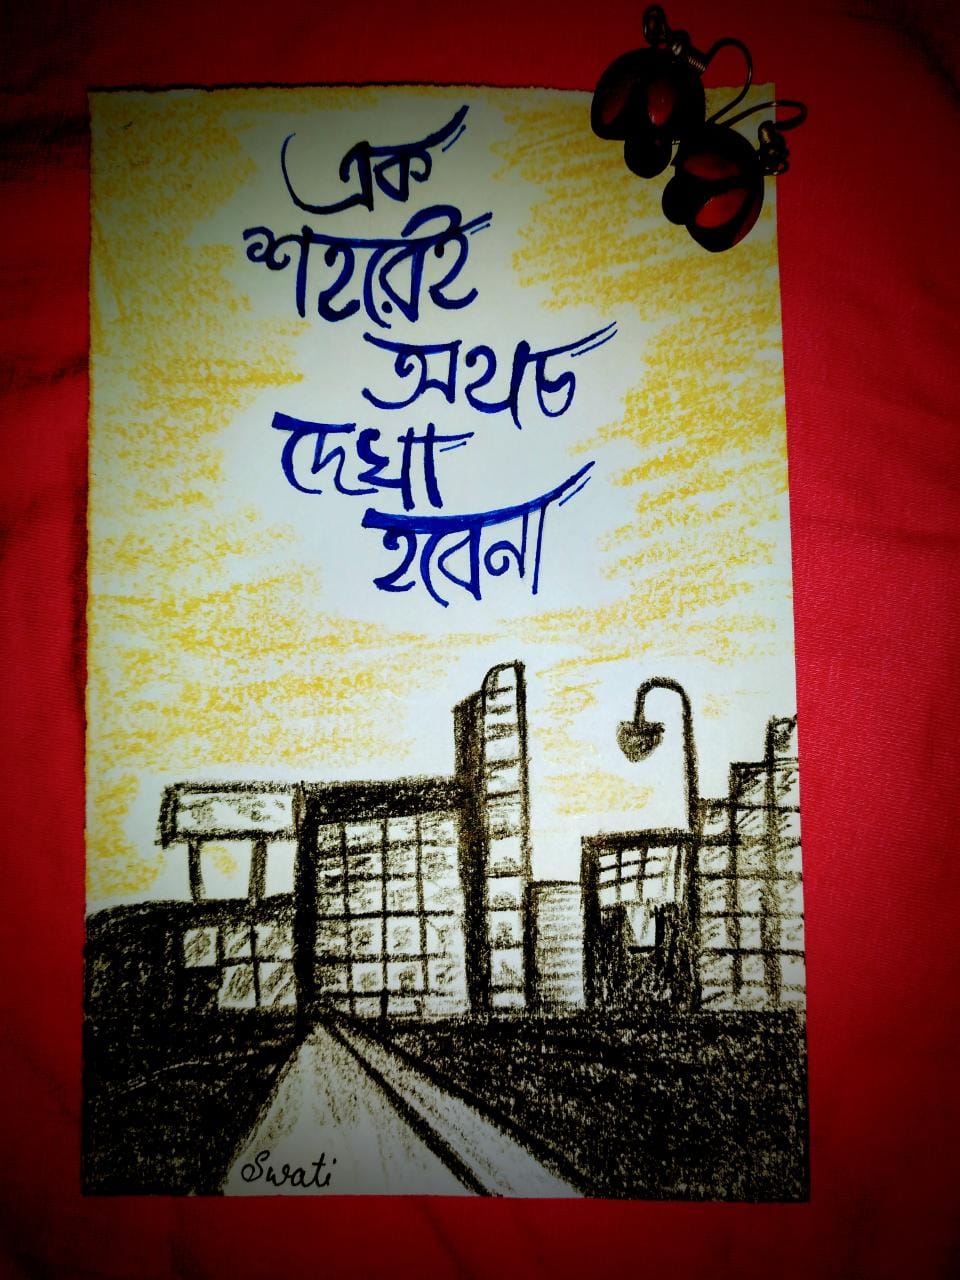 এক
শহরেই
অথচ
দেখা
হবেনা
Swati